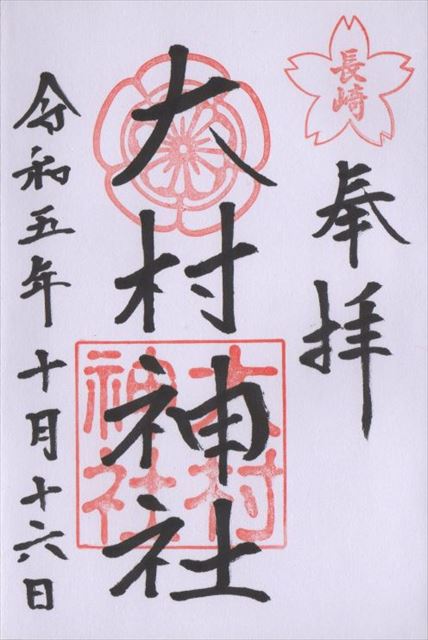 長崎
奉拝
大村神社
大村神社
令和五年十月十六日